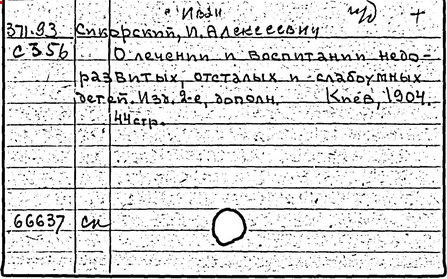 Иван
371.93 Сикорский, И. Алексеевич
С356 О лечении и воспитании недо-
развитых, отсталых и слабоумных
детей. Изд. 2-е, дополн. Киев, 1904.
44 стр.
66637 ск